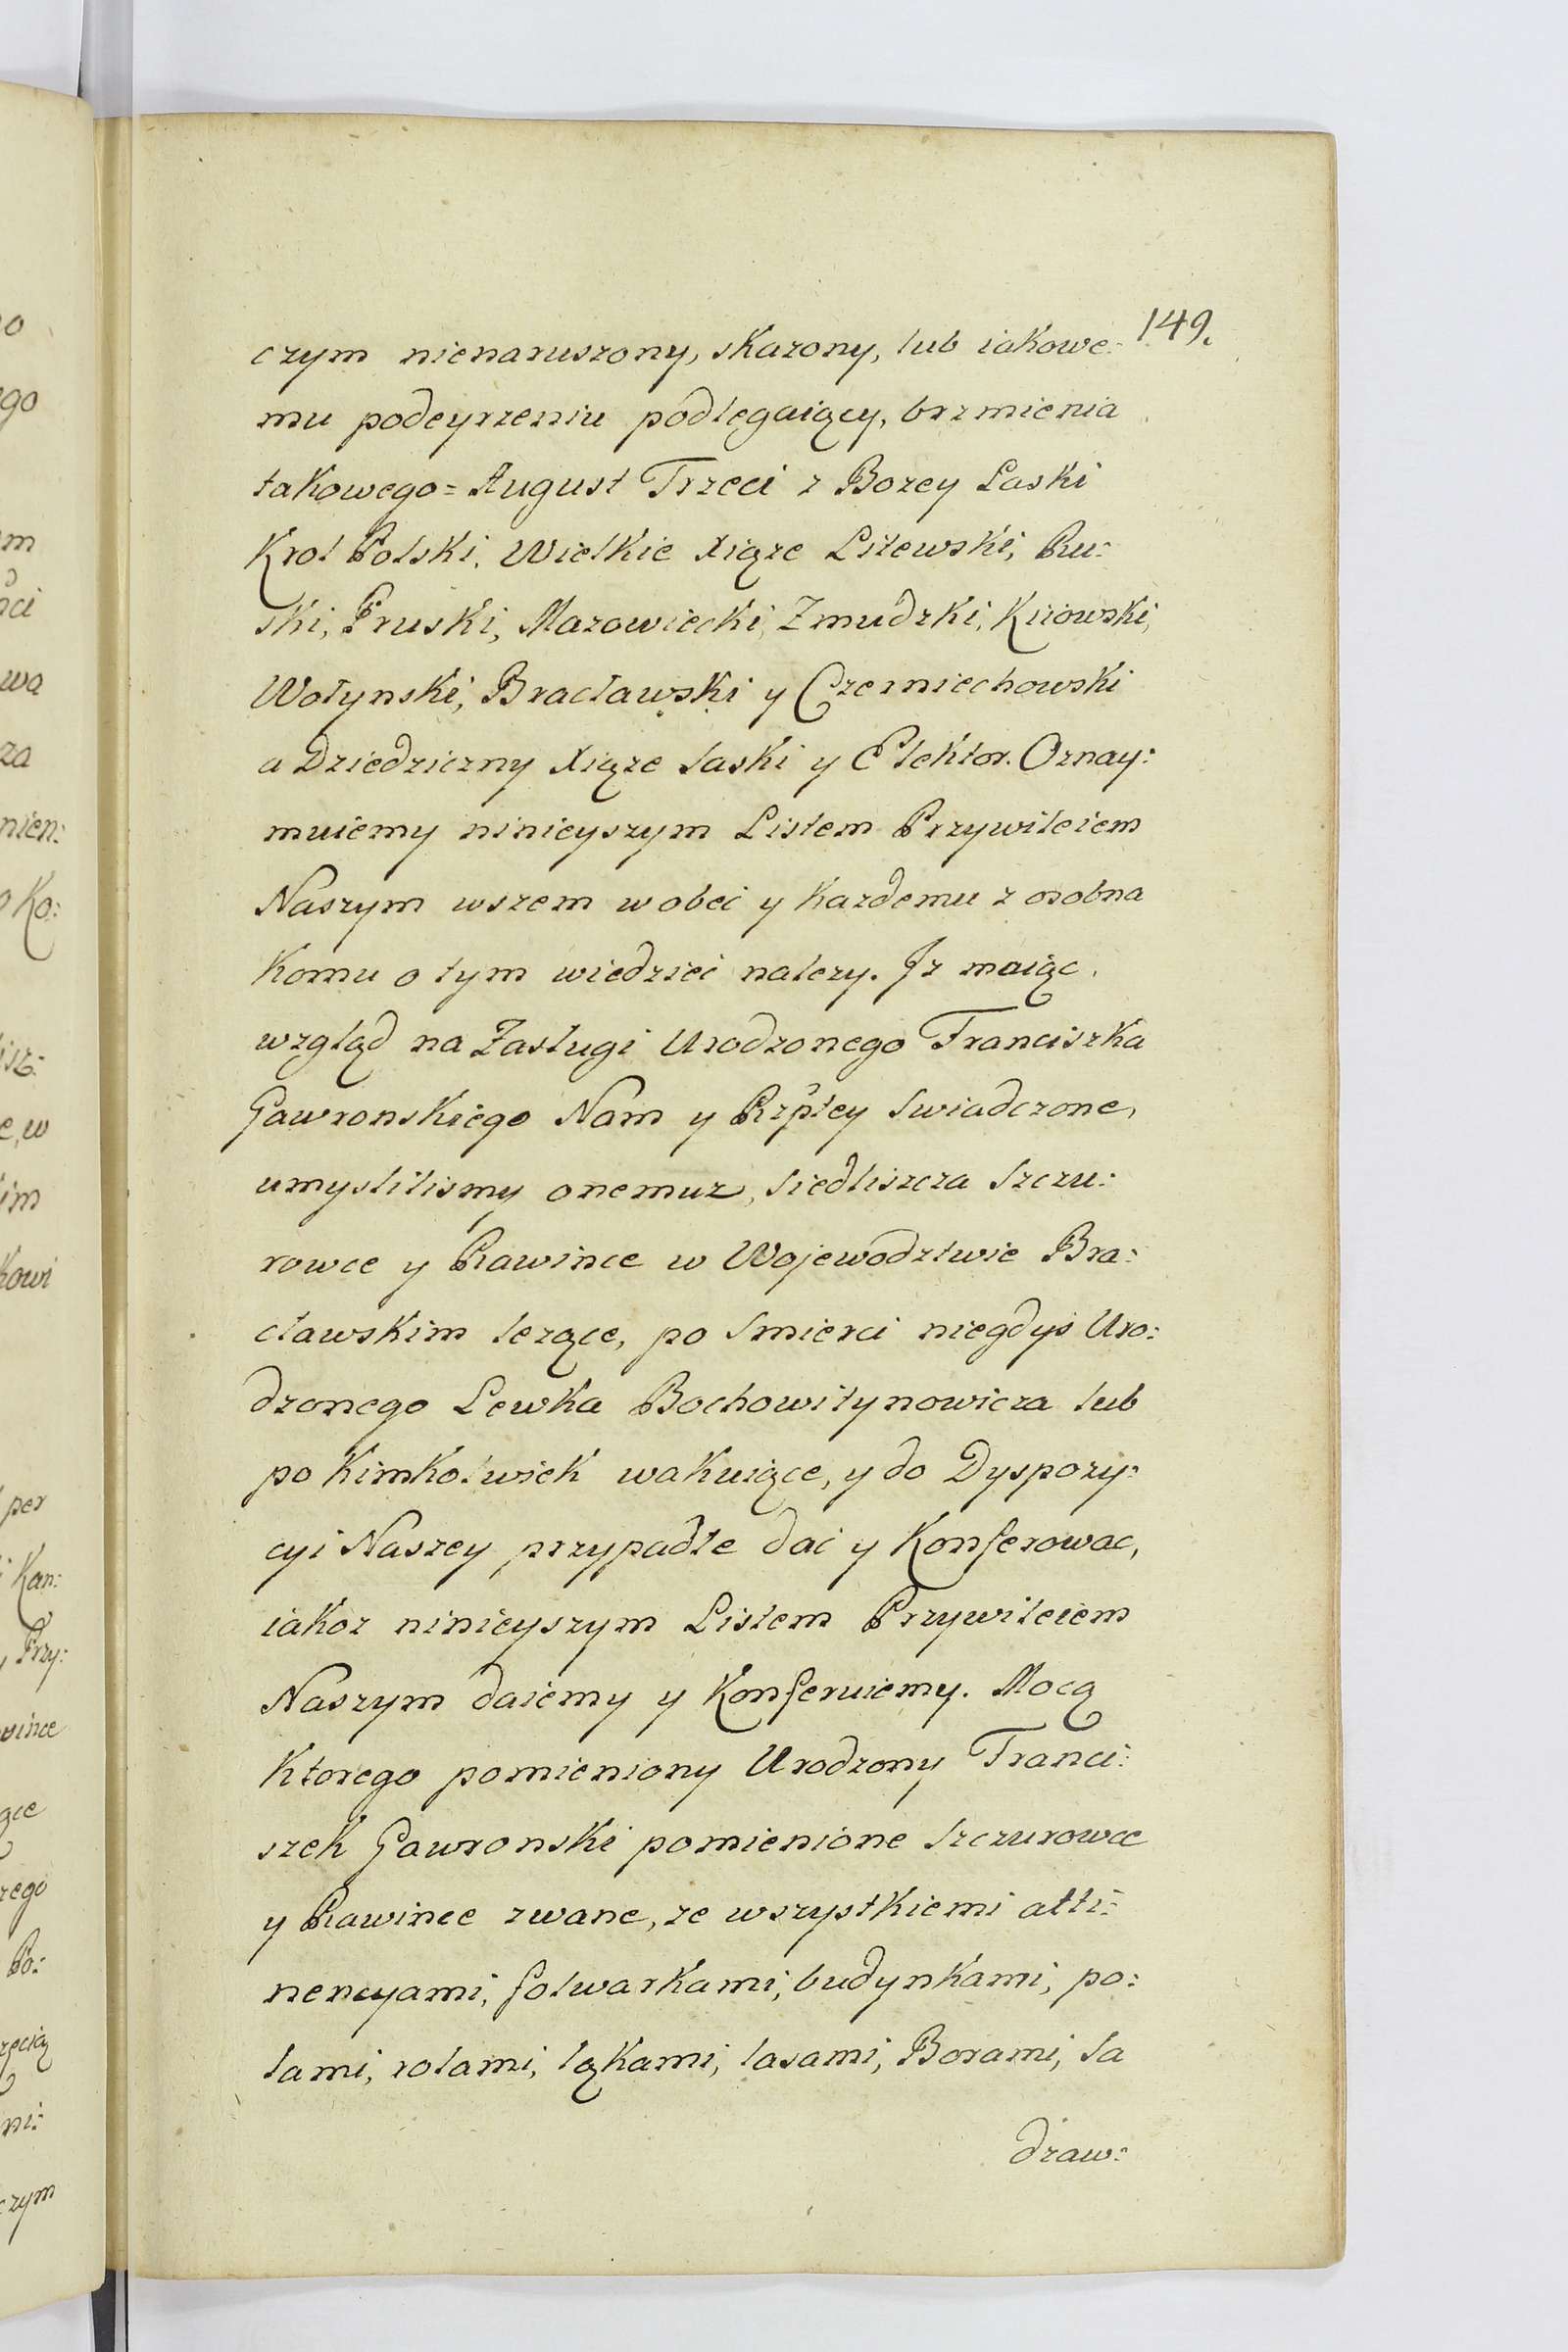 149.
czym nienaruszony, skazony, lub iakowe:
mu podeyrzeniu podlegaiący, brzmienia
takowego = August Trzeci z Bozey Laski
Krol Polski, Wielkie Xiąze Litewski, Ru:
ski, Pruski, Mazowiecki, Zmudzki, Kiiowski,
Wołynski, Bracławski y Czerniechowski
a Dziedziczny Xiąze Saski y Elektor. Oznay:
muiemy ninieyszym Listem Przywileiem
Naszym wszem wobec y każdemu z osobna
komu o tym wiedzieć nalezy. Iz maiąc
wzgląd na Zasługi Urodzonego Franciszka
Gawronskiego Nam y Rzptey swiadczone,
umyslilismy onemuz, Siedliszcza Szczu:
rowce y Rawince w Wojewodztwie Bra:
cławskim lezące, po smierci niegdys Uro:
dzonego Lewka Bochowitynowicza lub
po kimkolwiek wakuiące, y do Dyspozy:
cyi Naszey przypadłe dać y Konferowac,
iakoz ninieyszym Listem Przywileiem
Naszym daiemy y Konferuiemy. Mocą
ktorego pomieniony Urodzony Franci:
szek Gawronski pomienione Szczurowce
y Rawince zwane, ze wszystkiemi atti:
nencyami, folwarkami, budynkami, po:
lami, rolami, łąkami, lasami, Borami, Sa
dzaw:
o
ego
m
ści
wa
za
nien:
o Ko:
isz:
e, w
im
kowi
per
i Kan:
, Przy:
wince
ące
rego
Po:
zecią
ni:
czym